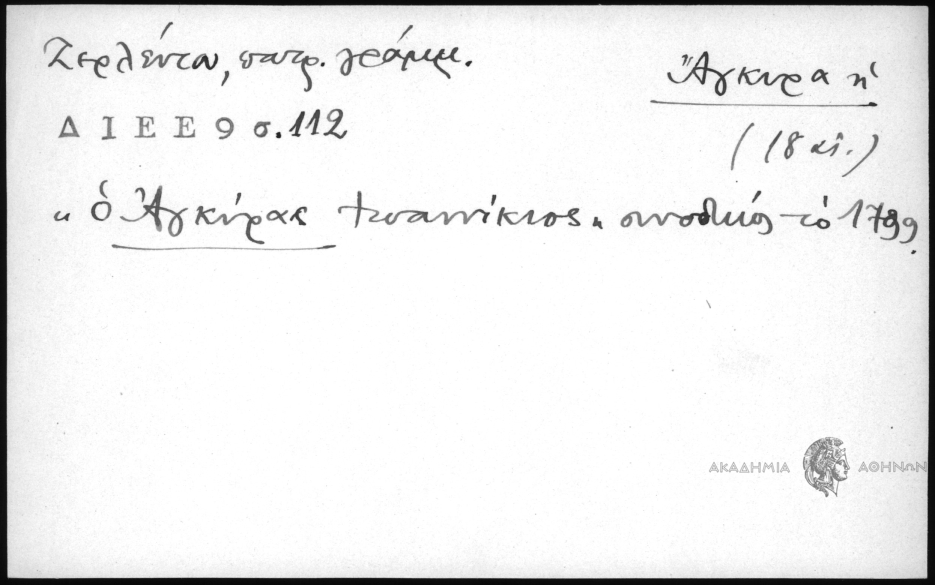 Ζερλέντου, πατρ. γράμμ.
Ἄγκυρα ἡ
ΔΙΕΕ 9 σ. 112
(18 αἰ.)
" ὁ Ἀγκύρας Ἰωαννίκιος " συνοδικός τὸ 1799.
ΑΚΑΔΗΜΙΑ ΑΘΗΝΩΝ